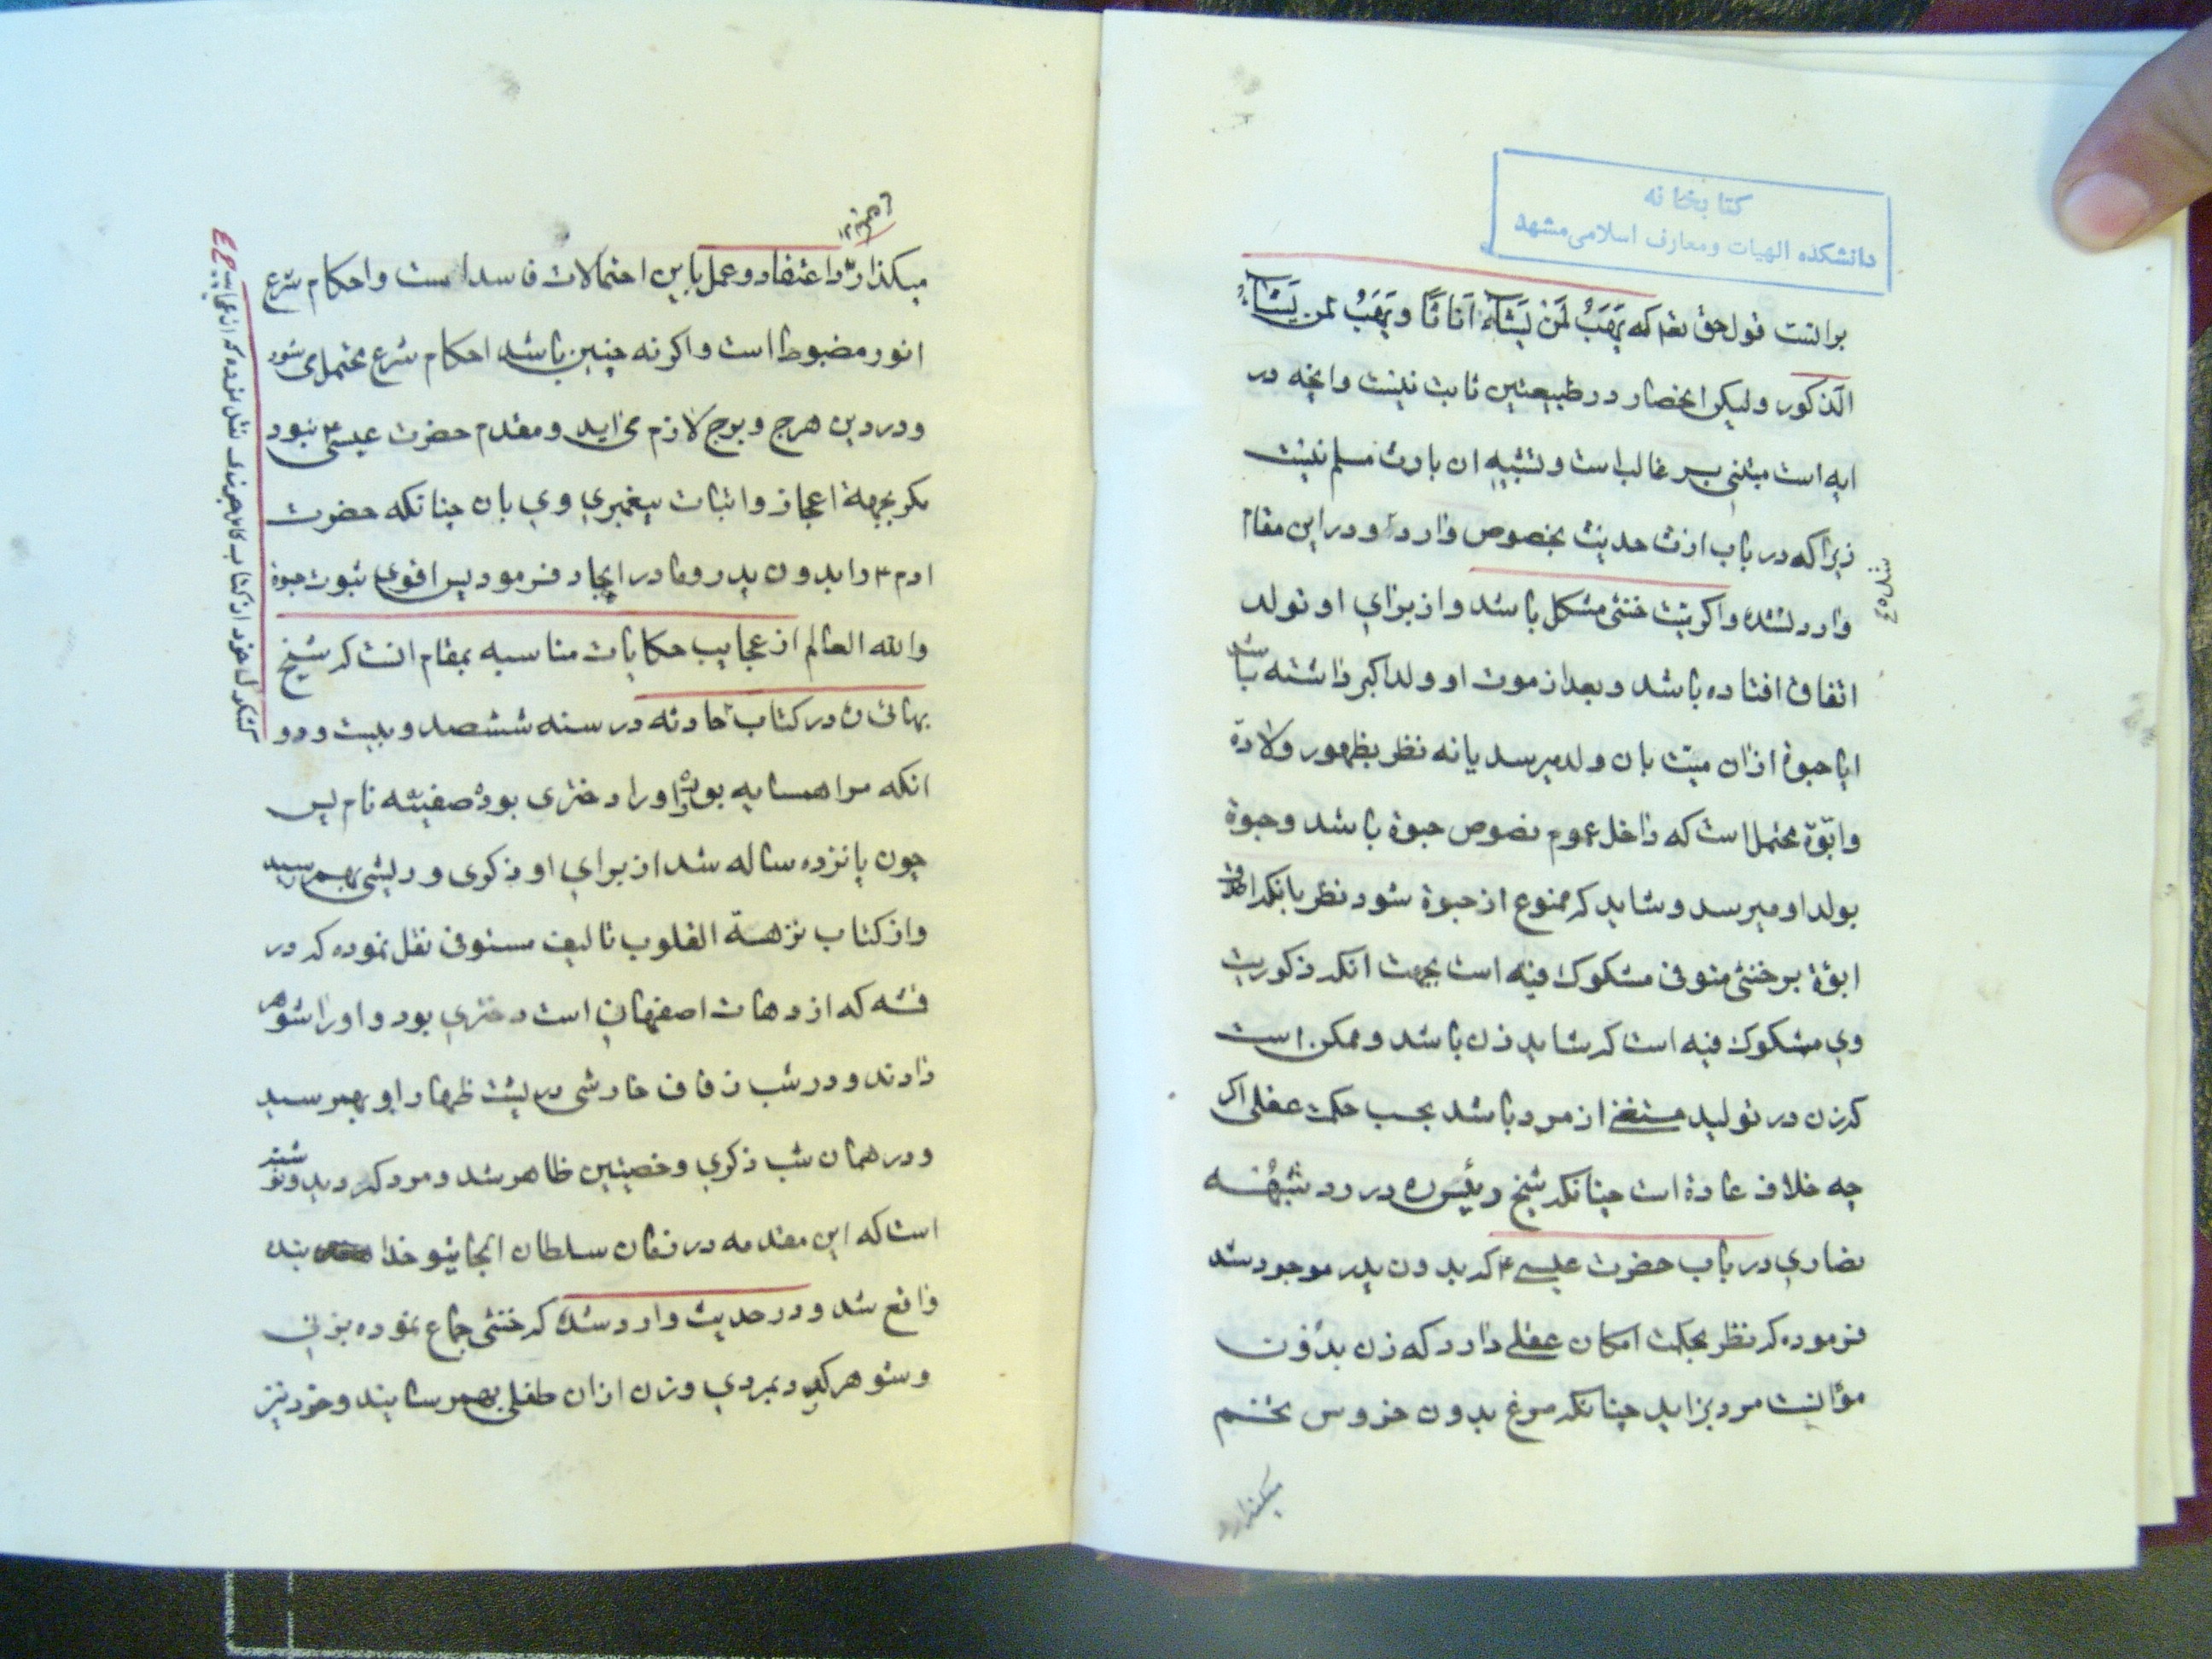 کتابخانه
دانشکده الهیات و معارف اسلامی مشهد
برانست قول حق تعه که یَهَبُ لِمَنْ یَشَآءُ اَنَاثًا و یَهَبُ لمن یَشَآءُ
الذکور ولیکن انحصار در طبیعتین ثابت نیست وانچه در
ایه است مبتنی بر غالب است و تشبیه ان بارث مسلم نیست
زیرا که در باب ارث حدیث بخصوص وارد و در این مقام
وارد نشده واکر میّت خنثی مشکل باشد و از برای او تولد
اتفاق افتاده باشد و بعد از موت او ولد اکبر داشته باشد
ایا حبوة ازان میّت بان ولد میرسد یانه نظر بظهور ولادة
وابّوة محتمل است که داخل عموم نصوص حبوة باشد وحبوة
بولد او میرسد وشاید که ممنوع از حبوة شود نظر بانکه اطلاق
ابوّة بر خنثی متوفی مشکوک فیه است بجهت انکه ذکوریت
وی مشکوک فیه است که شاید زن باشد و ممکن است
که زن در تولید مستغنی از مرد باشد بحسب حکمت عقلی اکر
چه خلاف عادة است چنانکه شیخ رئیس ره در رد شبهه
نصاری در باب حضرت عیسی ع که بدون پدر موجود شد
فرموده که نظر بحکمت امکان عقلی دارد که زن بدون
مؤانست مرد بزاید چنانکه مرغ بدون خروس تخم
میکذارد
میکذارد واعتقاد وعمل باین احتمالات فاسد است واحکام شرع
انور مضبوط است واکر نه چنین باشد احکام شرع محتمل می شود
ودر دین هرج ومرج لازم می اید ومقدم حضرت عیسی ع نبود
مکر بجهة اعجاز واثبات پیغمبری وی بان چنانکه حضرت
ادم ع را بدون پدر ومادر ایجاد فرمود پس اقوی ثبوت حبوة
والله العالم از عجایب حکایات مناسبه بمقام انست که شیخ
بهائی در کتاب حادثه در سنه ششصد وبیست ودو
انکه مرا همسایه بود واورا دختری بود صفیّه نام پس
چون پانزده ساله شد از برای او ذکری و ریشی بهم رسید
واز کتاب نزهة القلوب تالیف مستوفی نقل نموده که در
قشه که از دهات اصفهان است دختری بود و اورا شوهر
دادند ودر شب زفاف خارشی در پشت ظهار او بهمرسید
ودر همان شب ذکری وخصیتین ظاهر شد و مرد کردید ونوشته
است که این مقدمه در زمان سلطان الجایتو خدا بنده
واقع شد ودر حدیث وارد شده که خنثی جماع نموده بزنی
وشوهر کرد بمردی وزن ازان طفلی بهمرسانیند وخود نیز
کشکول خود از کتاب کامل جزری نقل نموده که از عجایب